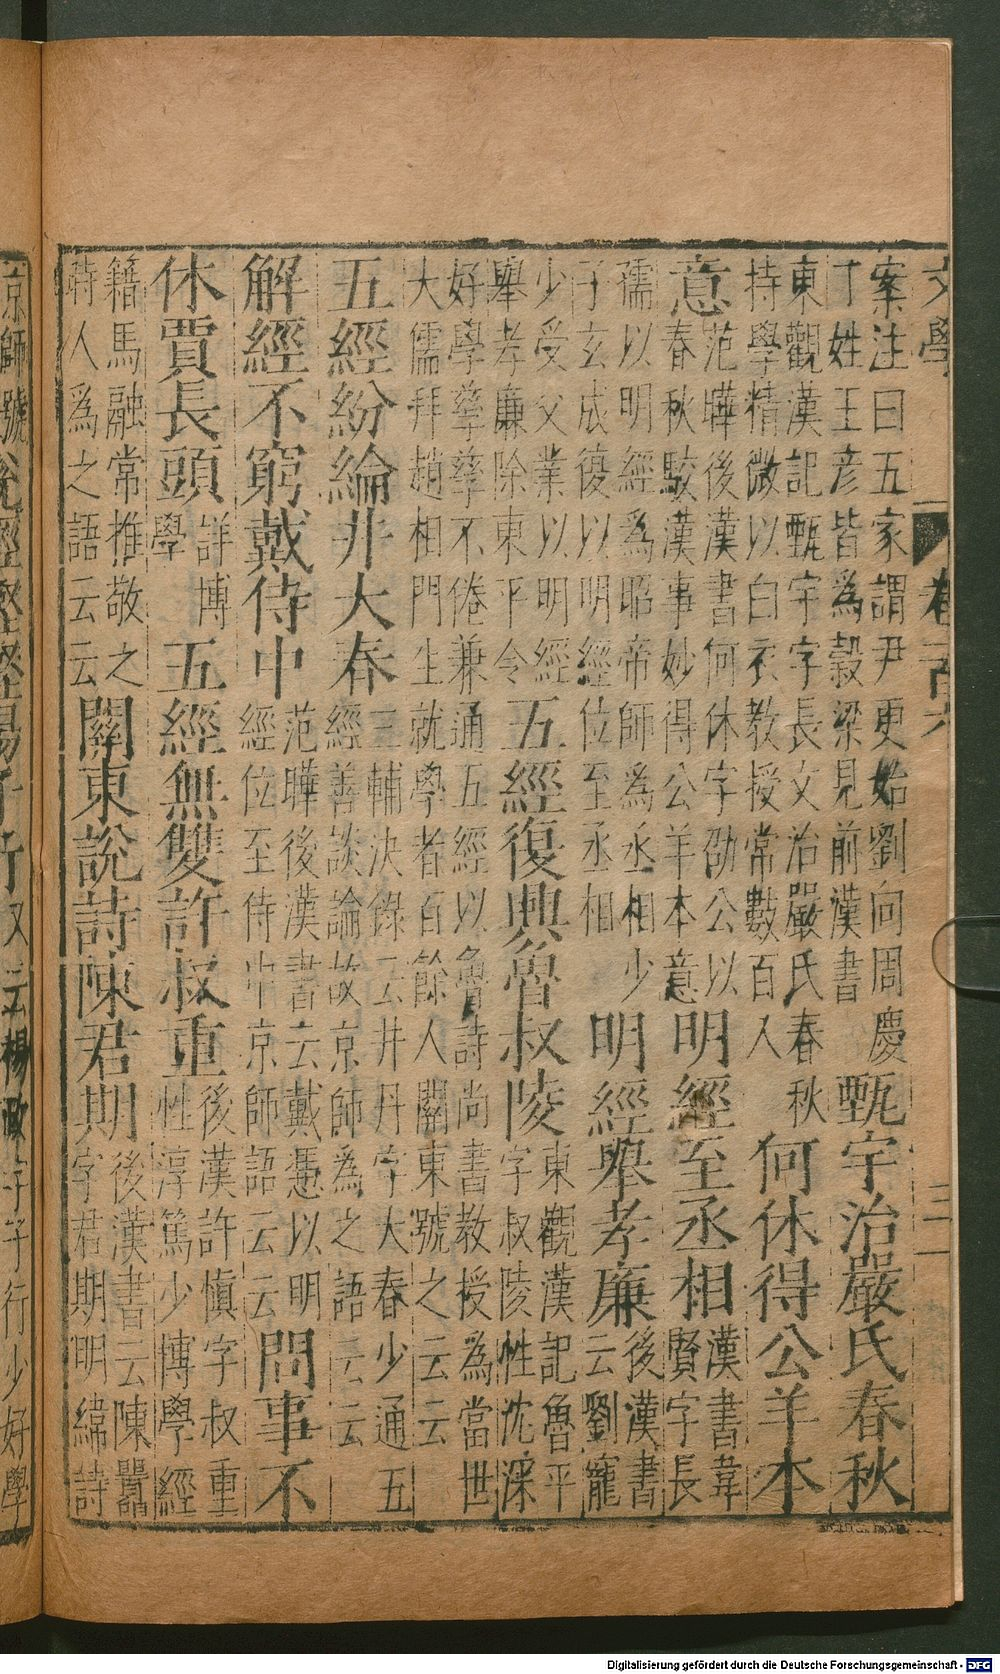 文學 卷一百六 二
案注曰五家謂尹更始劉向周慶
丁姓王彥皆為穀梁見前漢書
甄宇治嚴氏春秋
東觀漢記甄宇字長文治嚴氏春秋
持學精微以白衣教授常數百人
何休得公羊本
意
范曄後漢書何休字劭公以
春秋駮漢事妙得公羊本意
明經至丞相
漢書韋
賢字長
孺以明經為昭帝師為丞相少
子玄成復以明經位至丞相
明經舉孝廉
後漢書
云劉寵
少受父業以明經
舉孝廉除東平令
五經復興魯叔陵
東觀漢記魯平
字叔陵性沈深
好學孳孳不倦兼通五經以魯詩尚書教授為當世
大儒拜趙相門生就學者百餘人關東號之云云
五經紛綸井大春
三輔決錄云井丹字大春少通五
經善談論故京師為之語云云
解經不窮戴侍中
范曄後漢書云戴憑以明
經位至侍中京師語云云
問事不
休賈長頭
詳博
學
五經無雙許叔重
後漢許慎字叔重
性淳篤少博學經
籍馬融常推敬之
時人為之語云云
關東說詩陳君期
後漢書云陳囂
字君期明緯詩
京師號說經鏗鏗楊子行又云楊政字子行少好學
Digitalisierung gefördert durch die Deutsche Forschungsgemeinschaft - DFG